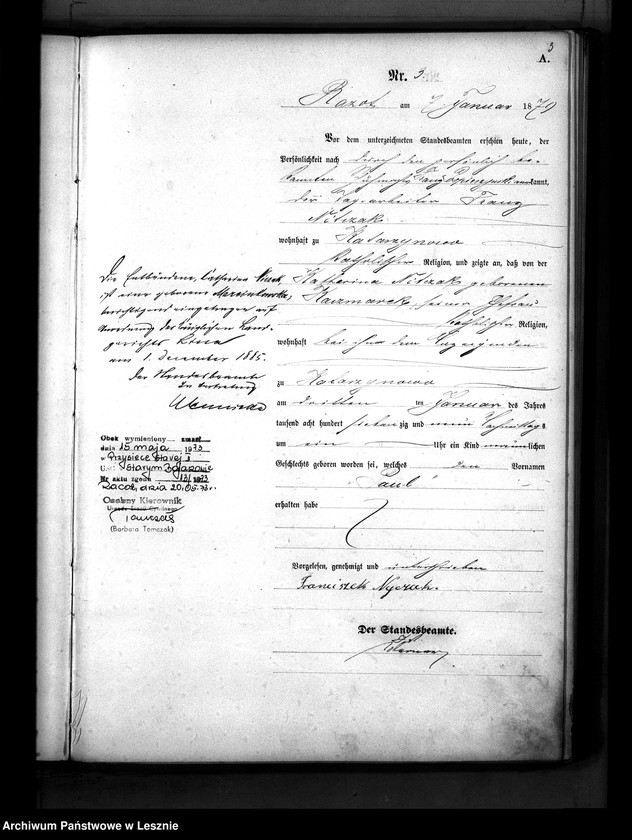 3
A.
Nr. 3
Razot am 7 Januar 1879
Vor dem unterzeichneten Standesbeamten erschien heute, der
Persönlichkeit nach durch den persönlich be-
kannten kannt,
der Tagearbeiter Franz
Nitzak
wohnhaft zu Katarzynowo
katholischer Religion, und zeigte an, daß von der
Katharina Nitzak geborenen
Kaczmarek, seiner Ehefrau
katholischer Religion,
wohnhaft bei ihm dem Anzeigenden
zu Katarzynowo
am dritten ten Januar des Jahres
tausend acht hundert siebenzig und neun Nachmittags
um ein Uhr ein Kind männlichen
Geschlechts geboren worden sei, welches den Vornamen
Paul
erhalten habe
Vorgelesen, genehmigt und unterschrieben
Franciszek Nyczak.
Der Standesbeamte.
Die Entbundene, Catharina
ist eine geborene
berichtigend eingetragen auf
Anordnung des Königlichen Land-
gerichts Lissa
am 1. December 1885.
Der Standesbeamte
In Vertretung
Obok wymieniony zmarł
dnia 15 maja 1973
w Przysiece Starej I
Usc Starym Bojanowie
Nr aktu zgonu 13/1973
Racot, dnia 20.05.73 r.
Osobny Kierownik
Urzędu Stanu Cywilnego
Tomczak
(Barbara Tomczak)
Archiwum Państwowe w Lesznie